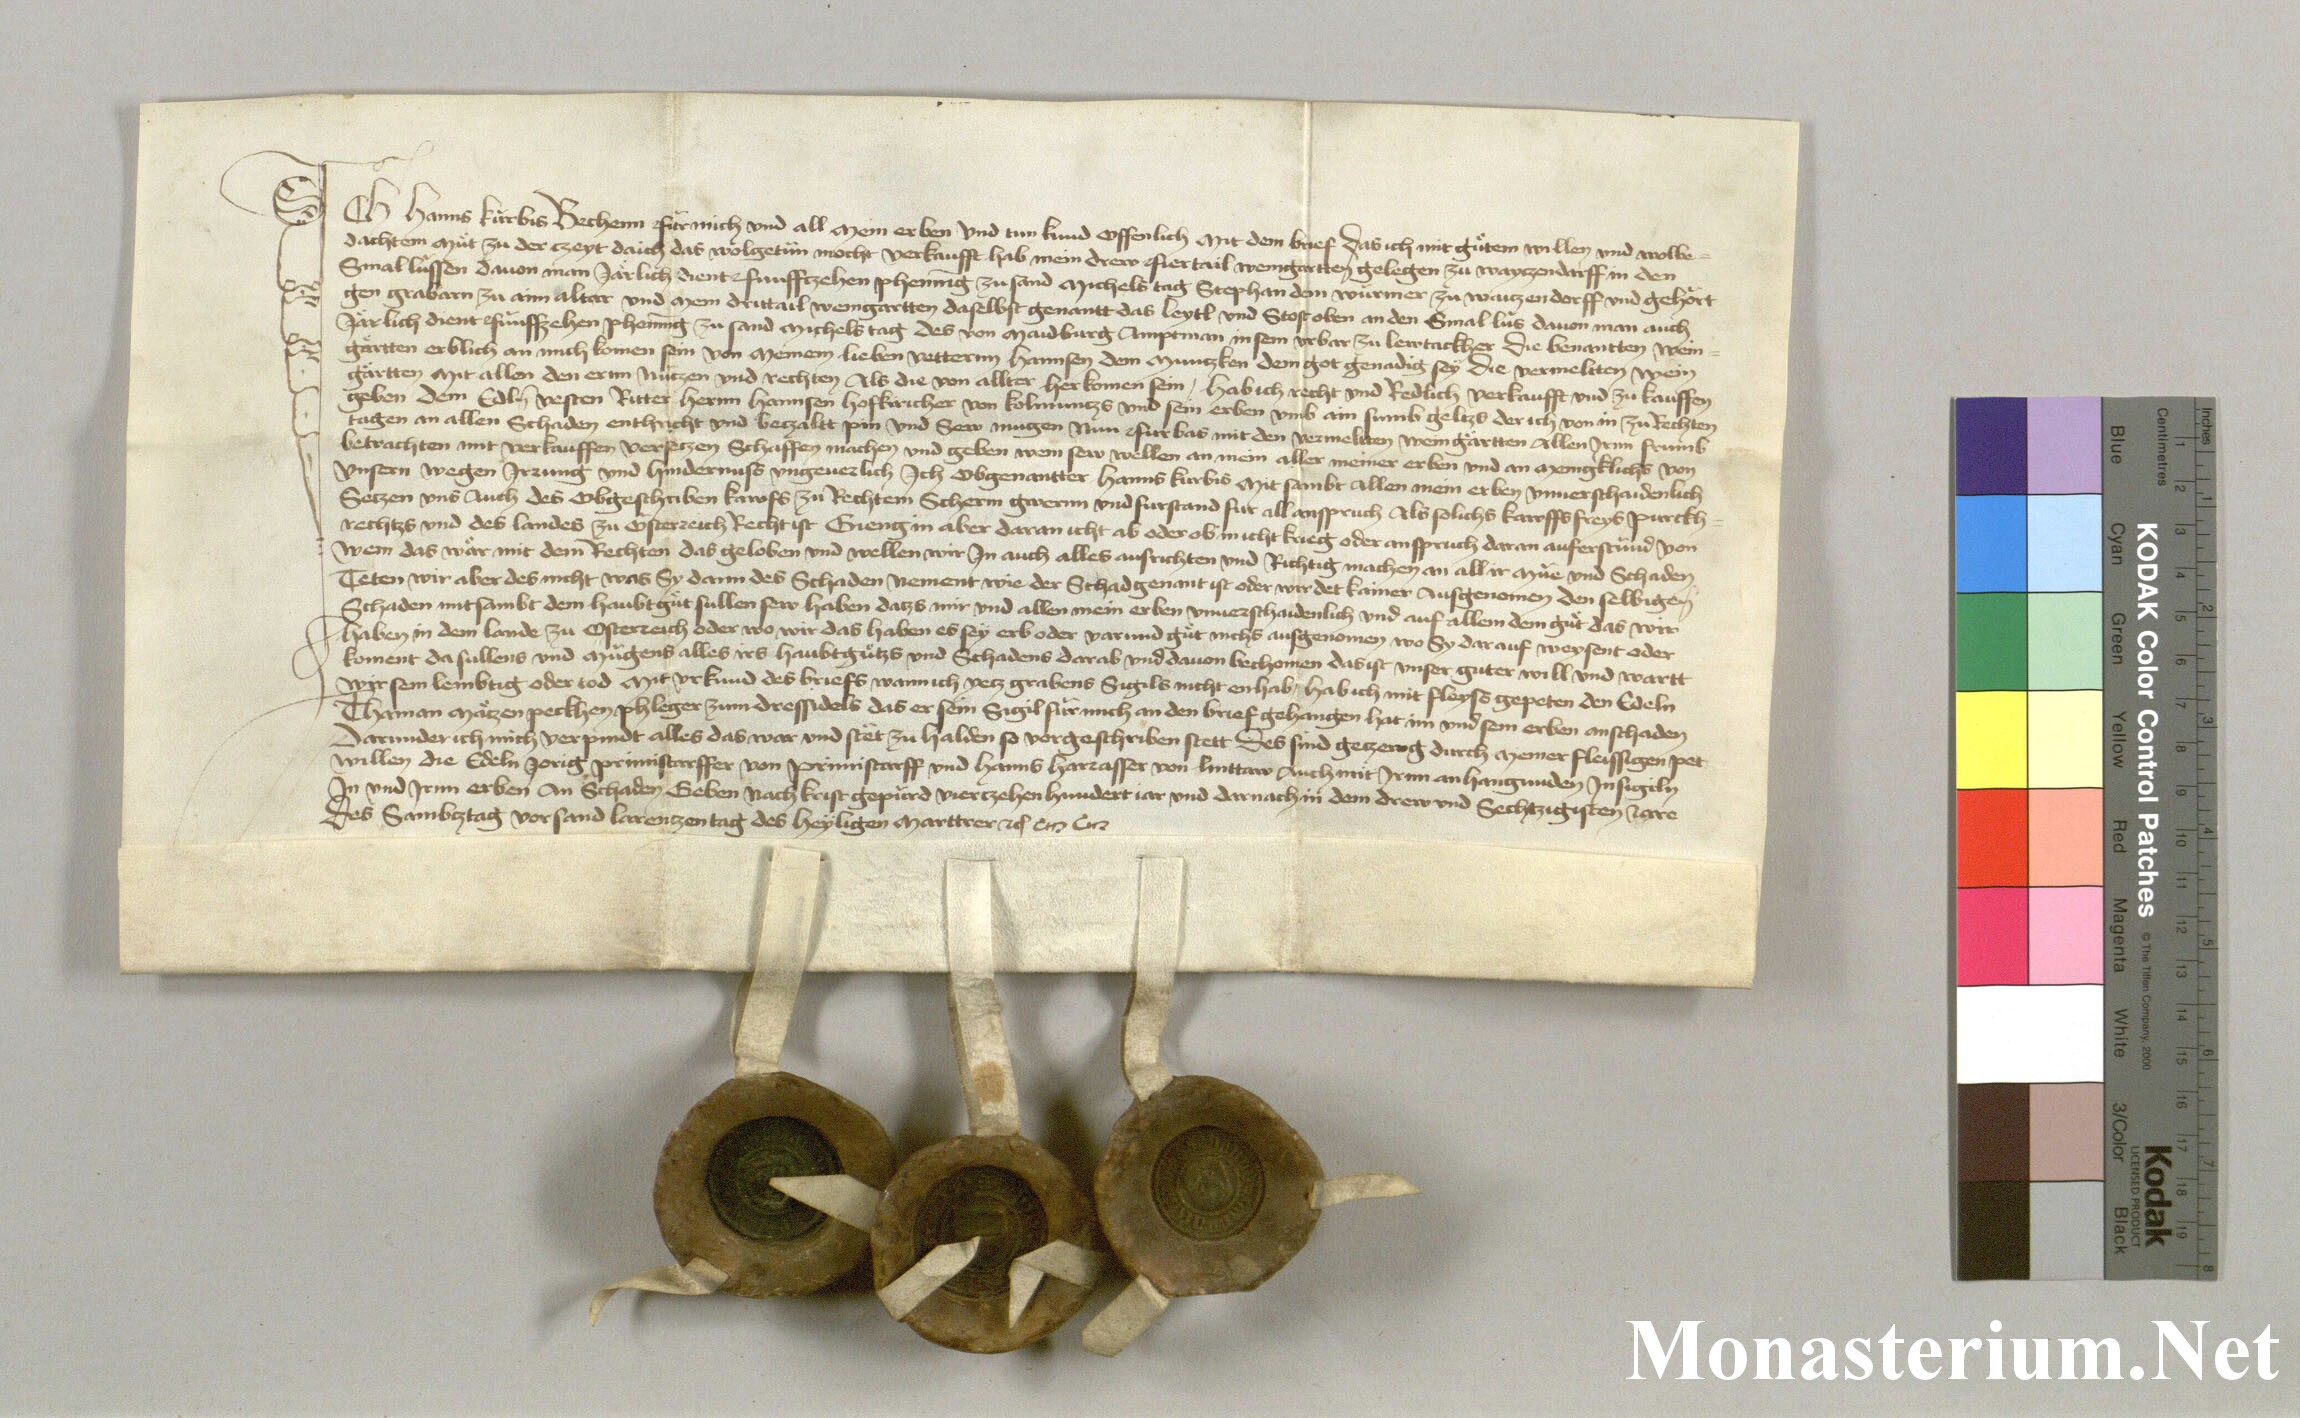 Ich Hanns kürbis Bechenn für mich vnd all mein erben Vnd tun kund offenlich Mit dem brief Das ich mit gütem willen vnd wolbe=
dachtem Müt zu der czeyt da ich das wolgetün mocht verkaufft hab mein drew viertail weingartten gelegen zu wayczendarff in den
Smal lüssen dauon man Järlich dient fünfftzehen phening zu sand Michels tag Stephan dem würmer zu waitzendorff vnd gehört
gen grabarn zu aim altar vnd Mein drittail weingartten daselbst genantt das leytl vnd Stost oben an den Smal lüs dauon man auch
Järlich dient fünffzehen phening zu sand Michels tag des von Maidburg Amptman in sein vrbar zu lewtackher Die benantten wein=
gärtten erblich an mich komen sein von Meinem lieben vetternn Hannsen dem Muntzken dem got genadig sey Die vermeltten wein
gärtten Mit allen den ernn Nützen vnd rechten Als die von allter herkomen sein / hab ich recht vnd Redlich verkaufft vnd zu kauffen
geben dem Edln vesten Ritter hernn Hannsen hofkiricher von kolmuntzs vnd sein erben vmb ain sumb geltzs der ich von in zu Rechten
tagen an allen Schaden enthricht vnd betzaltt pin vnd Sew mugen Nun fürbas mit den vermeltten weingärtten Allen Jrnn frumb
betrachten mit verkauffen versetzen Schaffen machen vnd geben wem sew wellen an mein aller meiner erben vnd an menigklichs von
Vnsern wegen Jrrung vnd hindernuss vngeuerlich Jch Obgenantter Hanns kürbis Mit sambt Allen mein erben vnuerschaidenlich
Setzen vns Auch des Obgeschriben kawfs zu Rechtem Scherm gwernn vnd fürstand für all anspruch Als solichs kawffs freys purckh=
rechtzs vnd des landes zu Osterreich Recht ist Gieng in aber daran icht ab oder ob in icht krieg oder anspruch daran auferstünd von
wem das wär mit dem Rechten das geloben vnd wellen wir Jn auch alles ausrichten vnd Richtig machen an all ir Müe vnd Schaden
Teten wir aber des nicht was Sy dann des Schaden Nement wie der Schad genant ist oder wirdet kainer Ausgenomen den selbigen
Schaden mitsambt dem haubtgüt sullen sew haben datzs mir vnd allen mein erben vnuerschaidenlich vnd auf allem dem güt das wir
haben in dem lande zu Osterreich oder wo wir das haben es sey erb oder varund güt nichs ausgenomen wo Sy darauf weysent oder
koment da sullens vnd Mügens alles irs haubtgützs vnd Schadens darab vnd dauon bechomen das ist vnser guter will vnd wartt
wir sein lembtig oder tod Mit vrkund des briefs wann ich yetz grabens Sigils nicht enhab / hab ich mit fleyss gepeten den Edeln
Thaman Mätzenpeckhen phleger zum dressidels das er sein Sigil für mich an den brief gehangen hat im vnd sein erben anschaden
Darunder ich mich verpindt alles das war vnd stët zu halden so vorgeschriben stett Des sind getzewg durch Meiner fleissigen pet
willen die Edeln Jorig prinnstarffer von prinnstarff vnd Hanns harrasser von linttaw Auch mit Jrnn anhangunden Jnsigiln
Jn vnd Jrnn erben An Schaden Geben Nach krist gepürd viertzehenhundert iar vnd darnach in dem drew vnd Sechtzigisten Jare
Des Sambtztag vor sand larentzen tag des heyligen Marttrer
KODAK Color Control Patches © The Tiffen Company, 2000
Kodak
LICENSED PRODUCT
Inches 1 2 3 4 5 6 7 8
Centimetres 1 2 3 4 5 6 7 8 9 10 11 12 13 14 15 16 17 18 19
Blue Cyan Green Yellow Red Magenta White 3/Color Black
Monasterium.Net